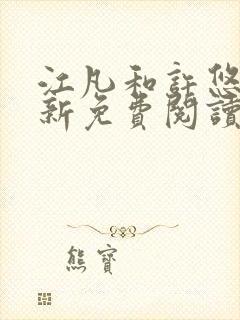 江凡和許悠
新免費閱讀
熊寶